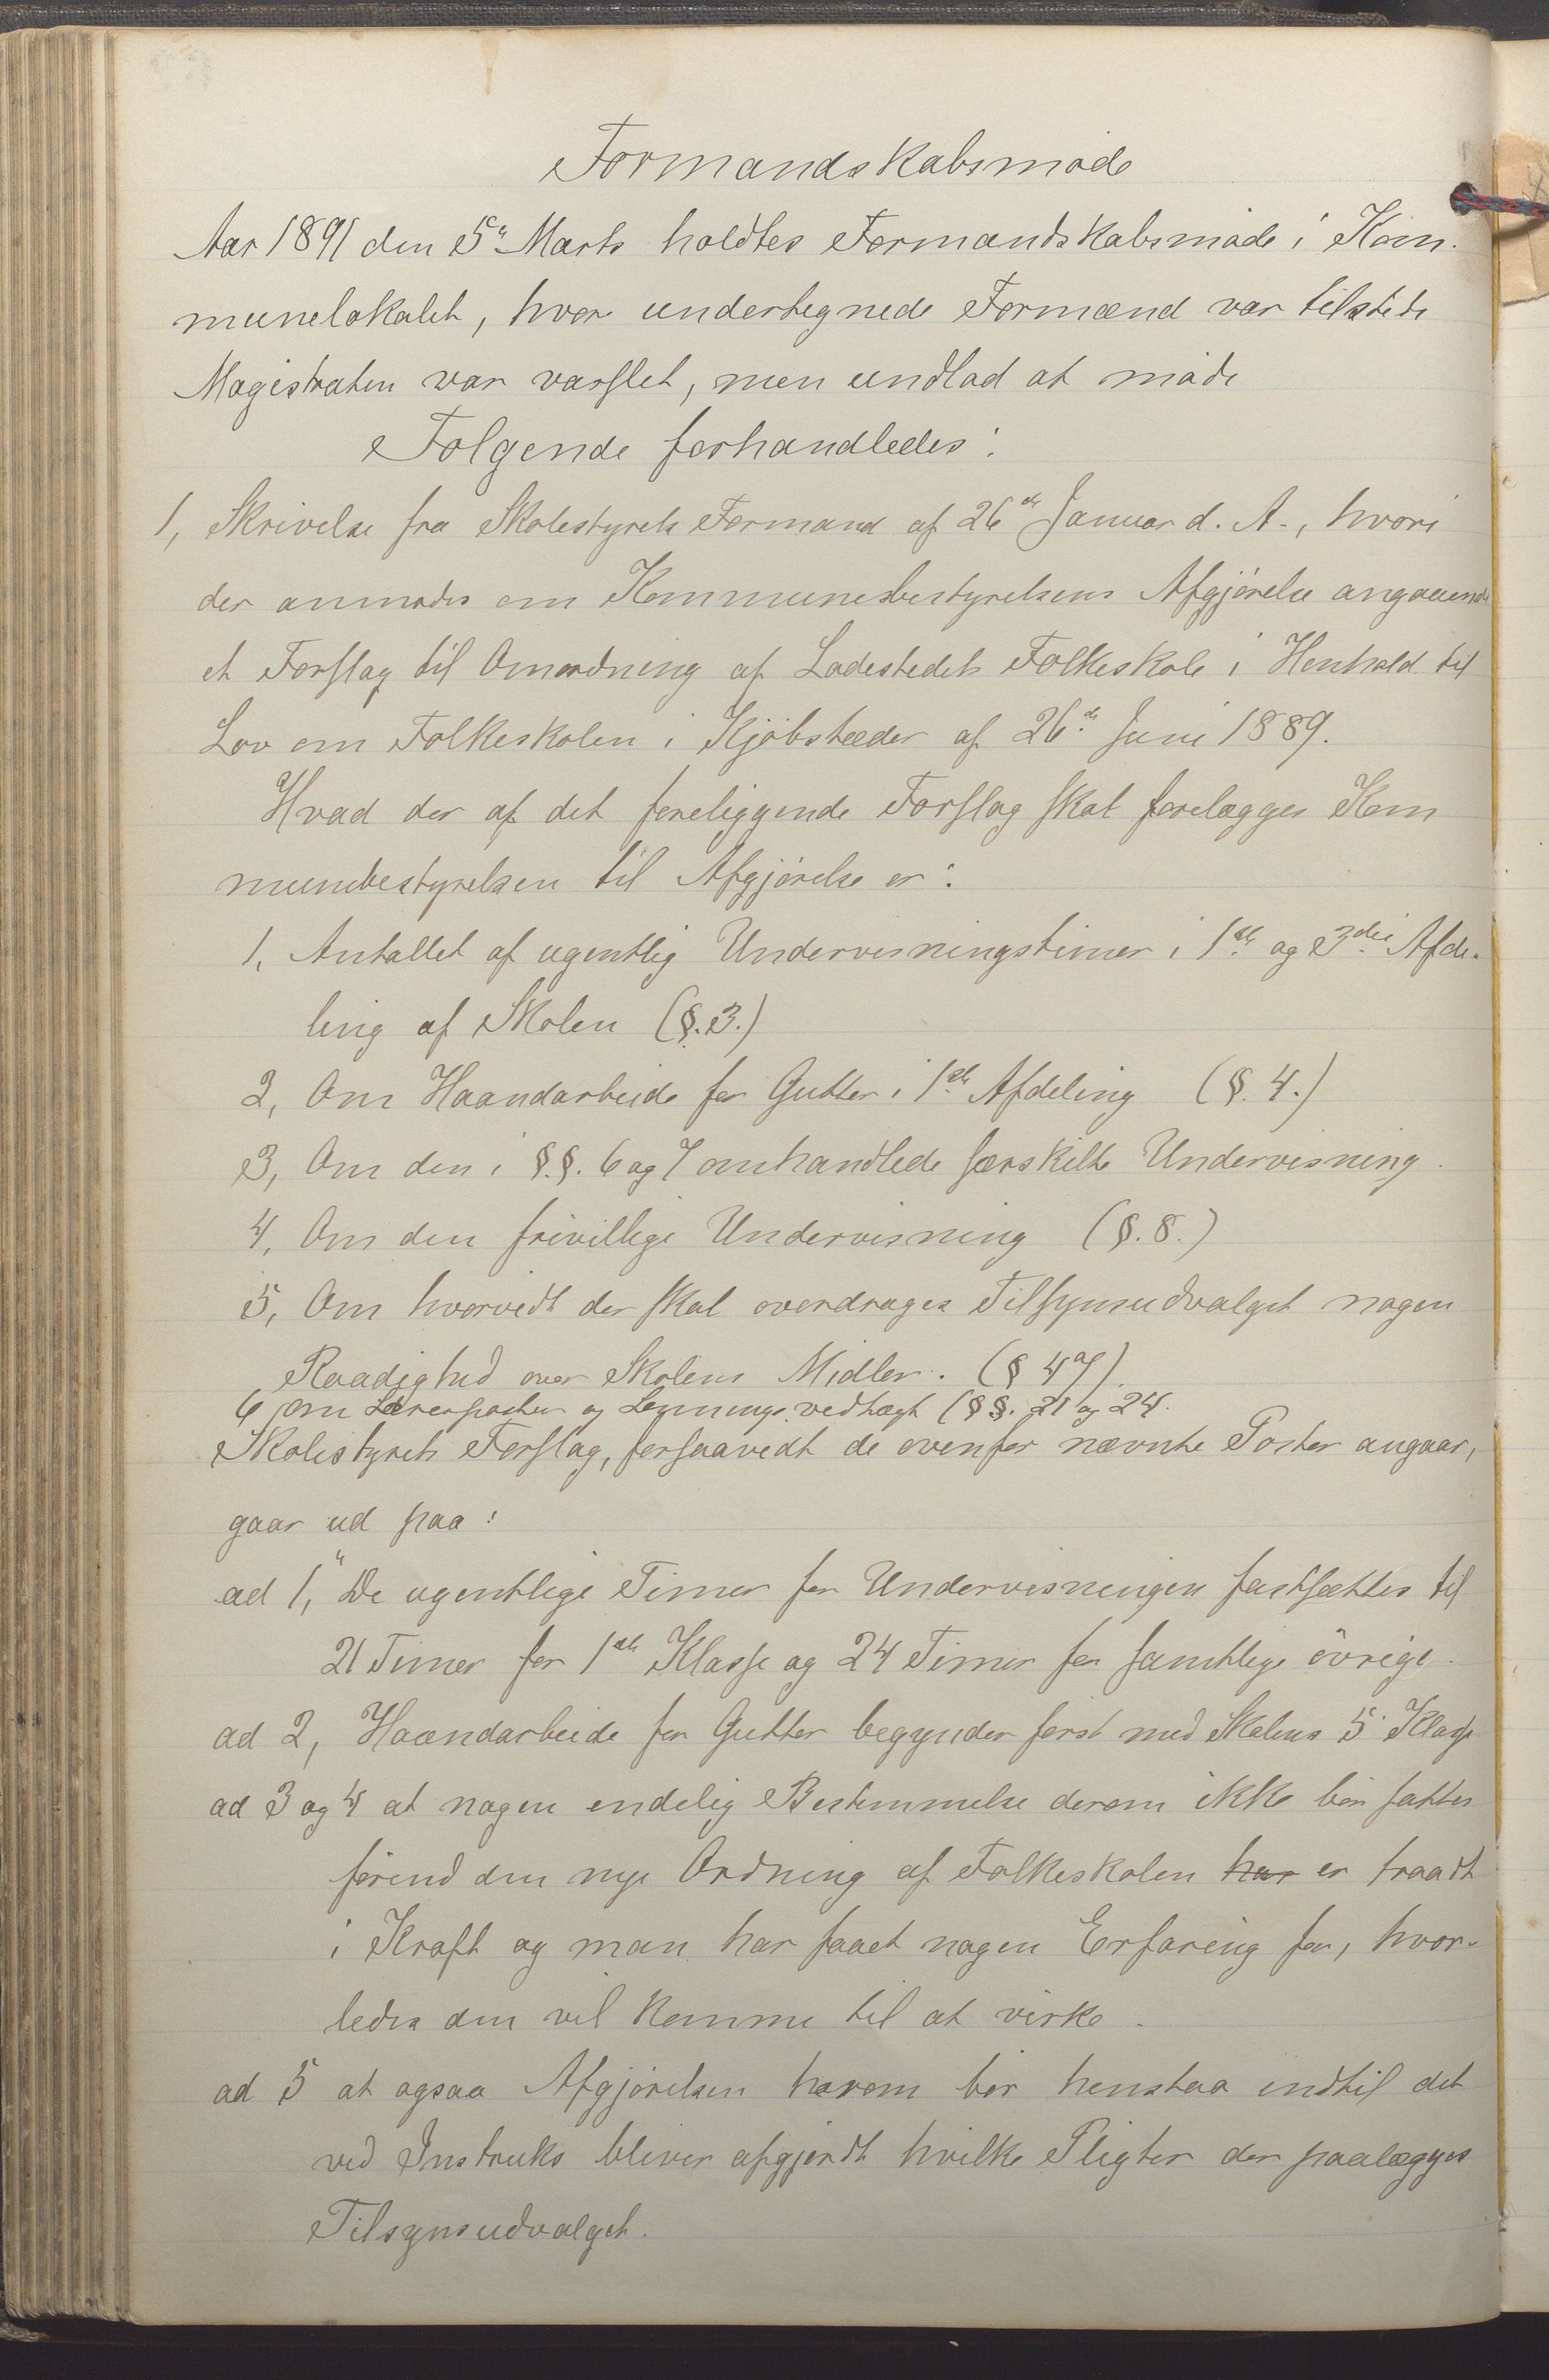 Formandskabsmøde
Aar 1891 den 5te Marts holdtes Formandskabsmøde i Kom-
munelokalet, hvor undertegnede Formænd var tilstede
Magistraten var varslet, men undlod at møde
Følgende forhandledes:
1, Skrivelse fra Skolestyrets Formand af 26de Januar d. A., hvori
der anmodes om Kommunesbestyrelsens Afgjørelse angaaende
et Forslag til Omordning af Ladestedets Folkeskole i Henhold til
Lov om Folkeskolen i Kjøbstæder af 26de Juni 1889.
Hvad der af det foreliggende Forslag skal forelægges Kom
munebestyrelsen til Afgjørelse er:
1, Antallet af ugentlig Undervisningstimer i 1ste og 3die Afde-
ling af Skolen (§. 3.)
2, Om Haandarbeide for Gutter i 1ste Afdeling (§. 4.)
3, Om den i §.§. 6 og 7 omhandlede særskilte Undervisning.
4, Om den frivillige Undervisning (§. 8.)
5, Om hvorvidt der skal overdrages Tilsynsudvalget nogen
Raadighed over Skolens Midler. (§ 47).
6 om Lærerposter og Lønningsvedtægt (§§. 21 og 24.
Skolestyrets Forslag, forsaavidt de ovenfor nævnte Poster angaar,
gaar ud paa:
ad 1, "De ugentlige Timer for Undervisningen fastsættes til
21 Timer for 1ste Klasse og 24 Timer for samtlige øvrige.
ad 2, Haandarbeide for Gutter begynder først med Skolens 5. Klasse
ad 3 og 4 at nogen endelig Bestemmelse derom ikke bør fattes
førend den nye Ordning af Folkeskolen har er traadt
i Kraft og man har faaet nogen Erfaring for, hvor-
ledes den vil komme til at virke.
ad 5 at ogsaa Afgjørelsen herom bør henstaa indtil det
ved Instruks bliver afgjordt hvilke Pligter der paalægges
Tilsynsudvalget.